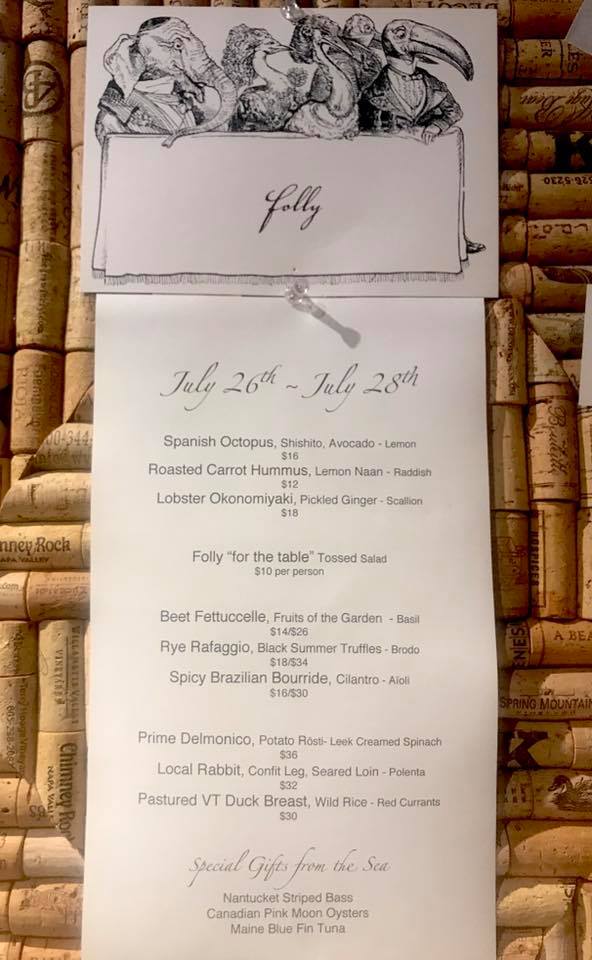 folly
July 26th ~ July 28th
Spanish Octopus, Shishito, Avocado - Lemon
$16
Roasted Carrot Hummus, Lemon Naan - Raddish
$12
Lobster Okonomiyaki, Pickled Ginger - Scallion
$18
Folly "for the table" Tossed Salad
$10 per person
Beet Fettuccelle, Fruits of the Garden - Basil
$14/$26
Rye Rafaggio, Black Summer Truffles - Brodo
$18/$34
Spicy Brazilian Bourride, Cilantro - Aïoli
$16/$30
Prime Delmonico, Potato Rösti- Leek Creamed Spinach
$36
Local Rabbit, Confit Leg, Seared Loin - Polenta
$32
Pastured VT Duck Breast, Wild Rice - Red Currants
$30
Special Gifts from the Sea
Nantucket Striped Bass
Canadian Pink Moon Oysters
Maine Blue Fin Tuna
RIOJA
mney Rock
NAPA VALLEY
Chimney Roc
NAPA VALLEY
SPRING MOUNTAIN
A BEA